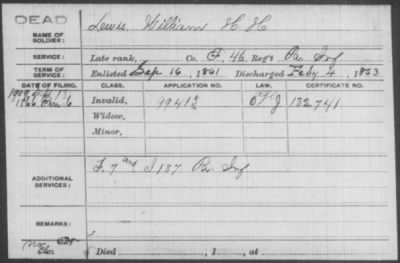 DEAD
NAME OF SOLDIER: Lewis, William H H
SERVICE: Late rank, Co. F, 46 Reg't Pa. Inf
TERM OF SERVICE: Enlisted Sep 16, 1861 Discharged Feby 4, 1863
DATE OF FILING. CLASS. APPLICATION NO. LAW. CERTIFICATE NO.
1866 6 Invalid, 99412 132.741
Widow,
Minor,
ADDITIONAL SERVICES: F. 7 and I 187 Pa. Inf
REMARKS:
Died , 1 , at